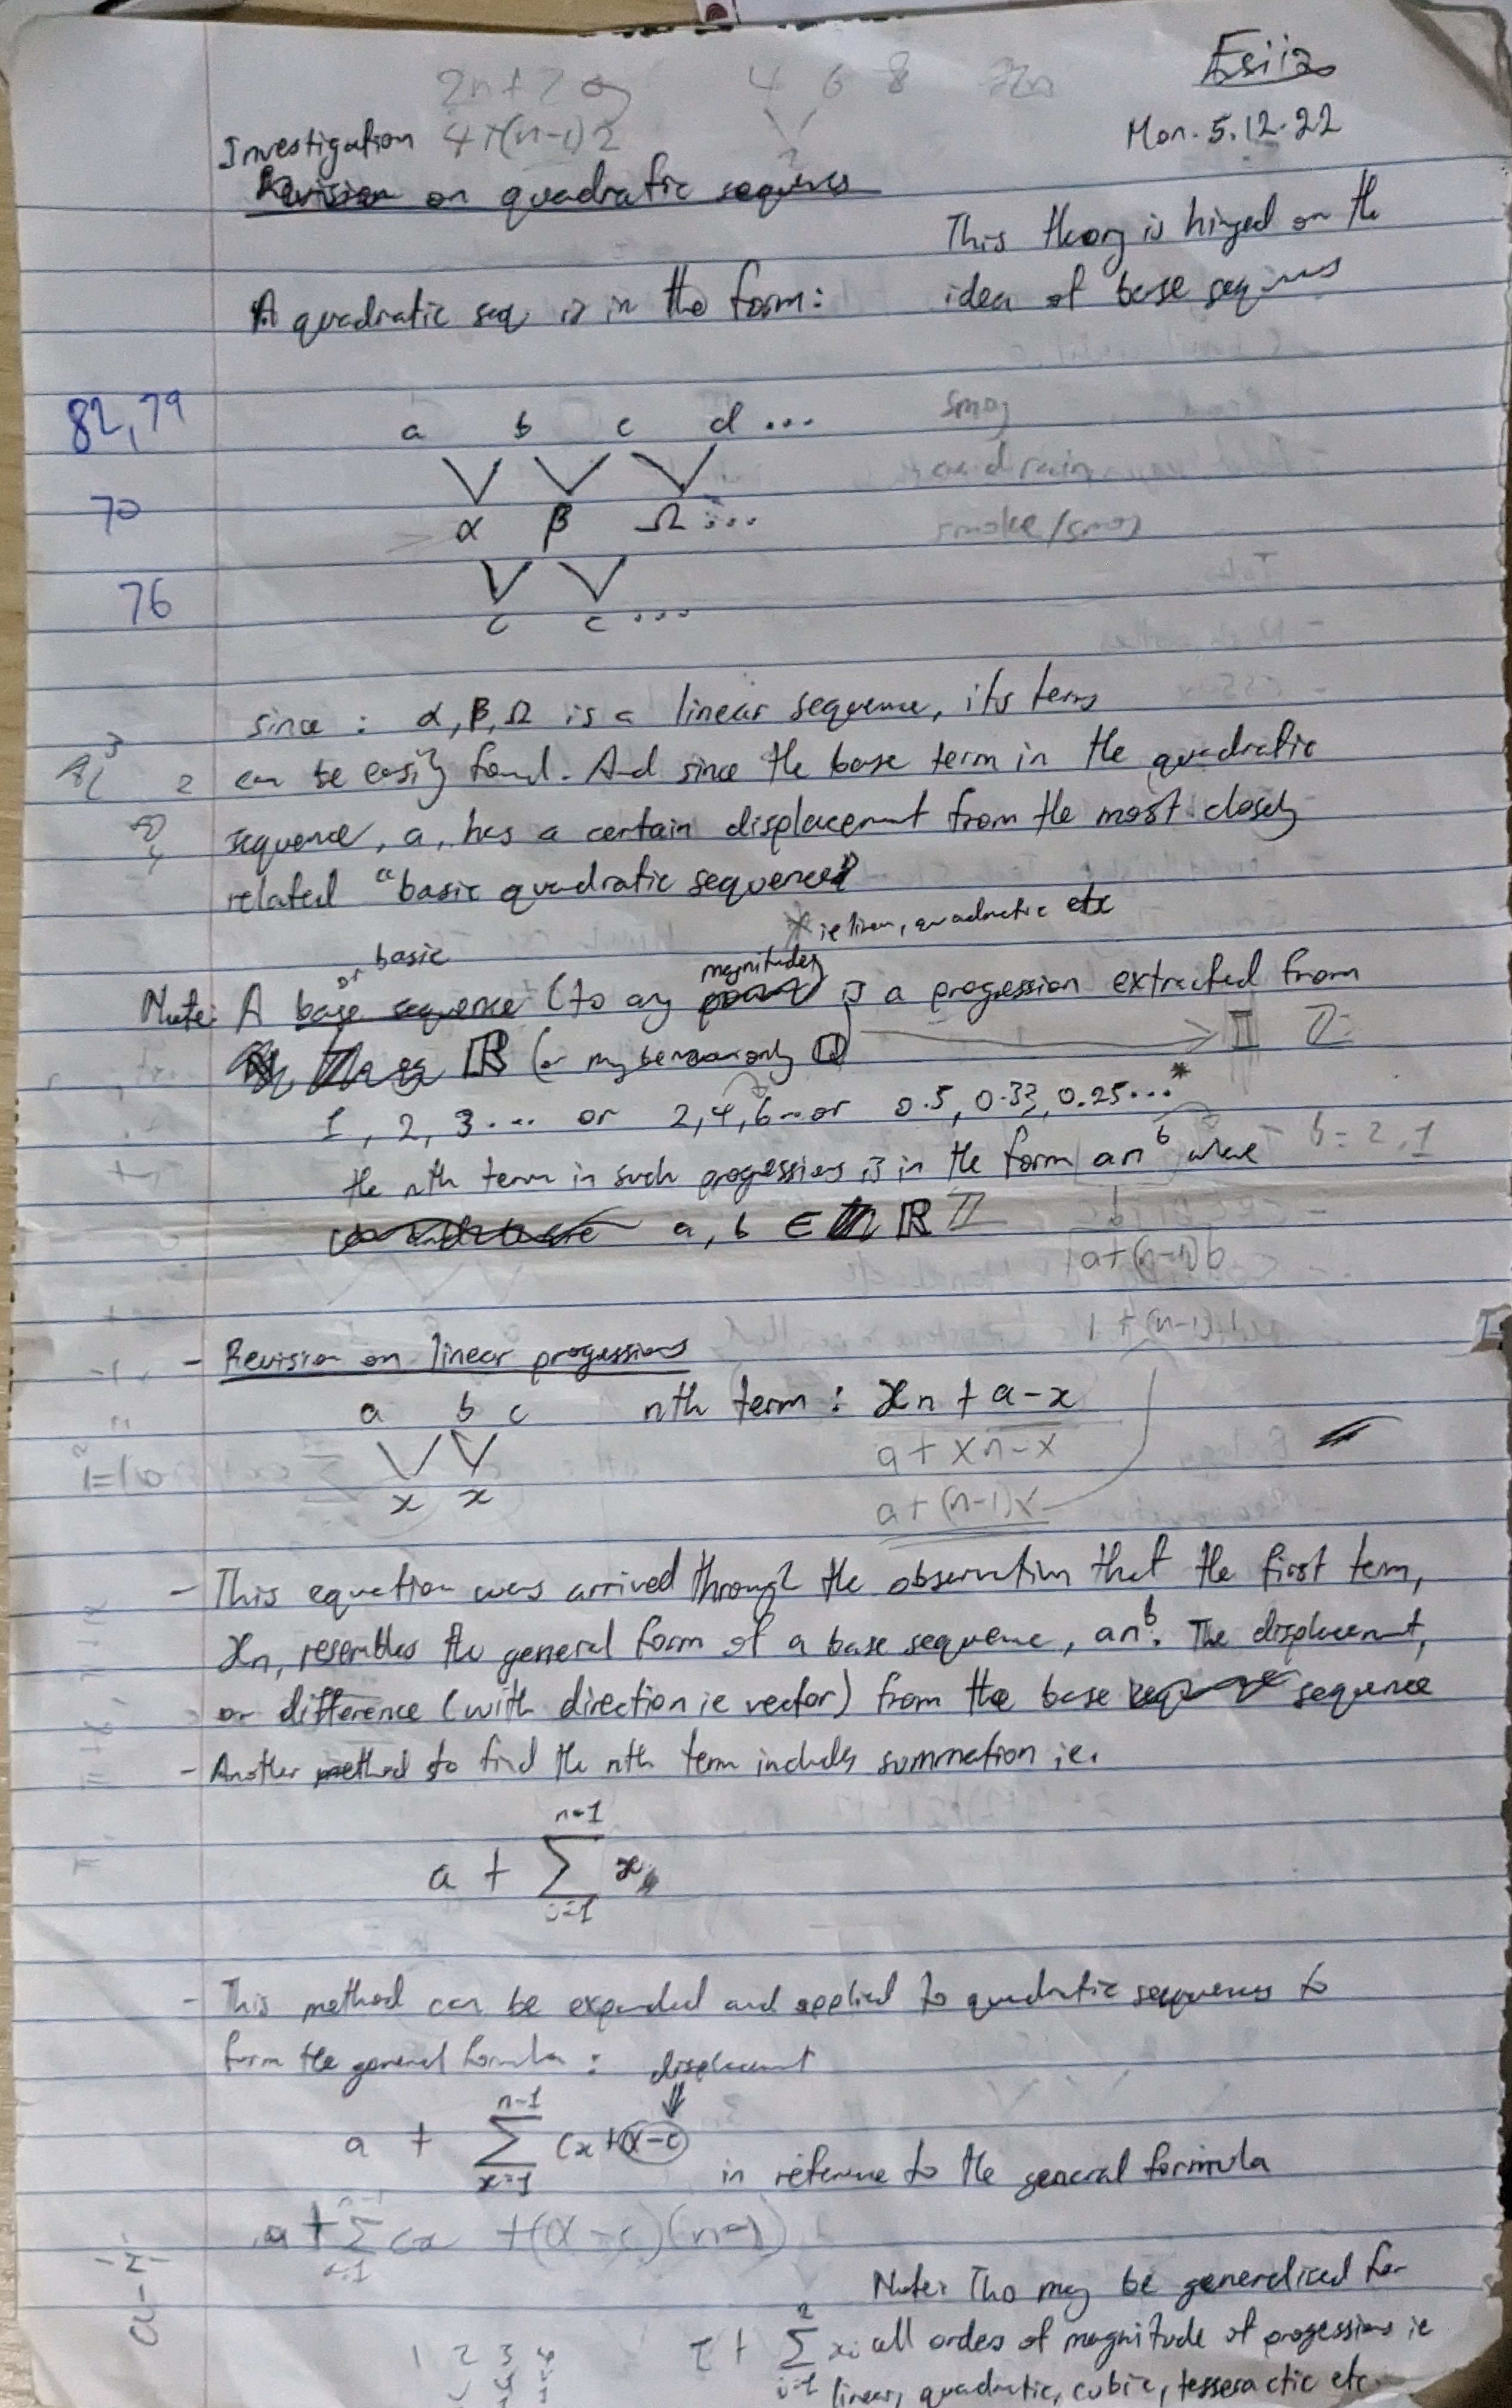 Esiiz
2n+2 4 6 8 2n
Mon. 5.12.22
Investigation 4+(n-1)2
2
Revision on quadratic sequences
This theory is hinged on the
A quadratic seq. is in the form: idea of base sequences
82, 79
a b c d ... smog
acid rain
70
α β Ω ... smoke/smog
76
c c ...
since : α, β, Ω is a linear sequence, its terms
can be easily found. And since the base term in the quadratic
sequence, a, has a certain displacement from the most closely
related "basic quadratic sequence"
* ie linear, quadractic etc
or basic
magnitudes
Note: A base sequence (to any power) is a progression extracted from
ℝ (or maybe only ℚ) ℤ
1, 2, 3... or 2, 4, 6... or 0.5, 0.33, 0.25...*
the nth term in such progressions is in the form an^b where b = 2, 1
a, b ∈ ℝ ℤ
a+(n-1)d
1 + (n-1)1
- Revision on linear progessions
a b c nth term : xn + a - x
a + xn - x
x x
a + (n-1)x
- This equation was arrived through the observation that the first term,
xn, resembles the general form of a base sequence, an^b. The displacement,
or difference (with direction ie vector) from the base sequence
- Another method to find the nth term includes summation ie.
n-1
a + Σ x
i=1
- This method can be expanded and applied to quadratic sequences to
form the general formula : displacement
n-1
a + Σ cx + (α-c)
x=1
in reference to the general formula
n-1
a + Σ cx + (α-c)(n-1)
x=1
Note: This may be generalised for
2
τ + Σ xi all orders of magnitude of progessions ie
i=1
1 2 3 4
linear, quadratic, cubic, tesseractic etc.